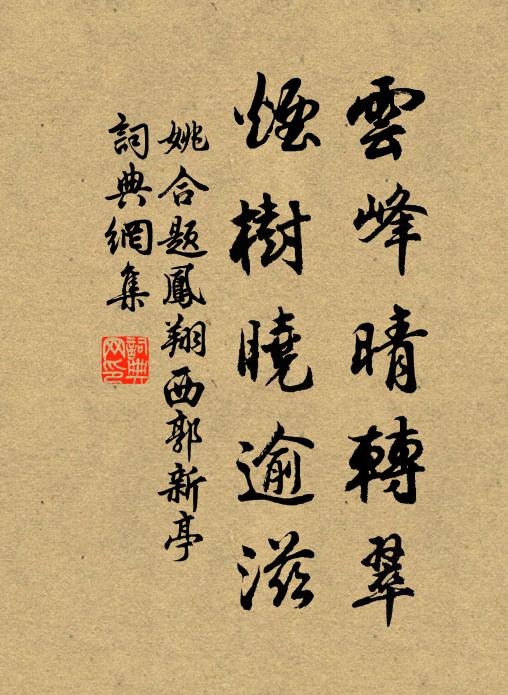 雲峰晴轉翠
煙樹曉逾滋
姚合題鳳翔西郭新亭
詞典網集
詞典网印